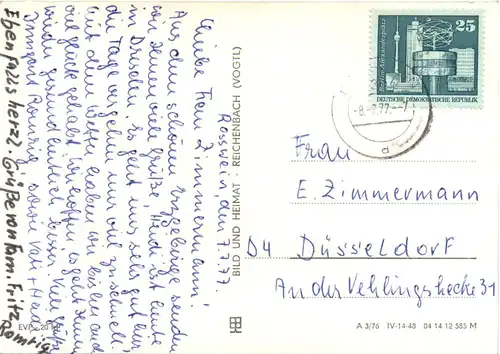 Rosswein den 7.7.77.
Liebe Frau Zimmermann!
Aus dem schönen Erzgebirge senden
wir Ihnen viele Grüße, Heidi ist heute
in Dresden. Es geht uns sehr gut hier
die Tage vergehen nur viel zu schnell.
Mit dem Wetter haben wir bis heute auch
viel Glück gehabt. Wir hoffen, es geht Ihnen
wieder gesundheitlich besser. Viele Grüße
Ebenfalls herzl. Grüße von Fam. Fritz
Romrig
EVP
BILD UND HEIMAT · REICHENBACH (VOGTL)
Berlin-Alexanderplatz
25
DEUTSCHE DEMOKRATISCHE REPUBLIK
-8.-7.77.-
a
Frau
E. Zimmermann
D4 Düsseldorf
An der Vehlingshecke 31
A 3/76 IV-14-48 04 14 12 585 M